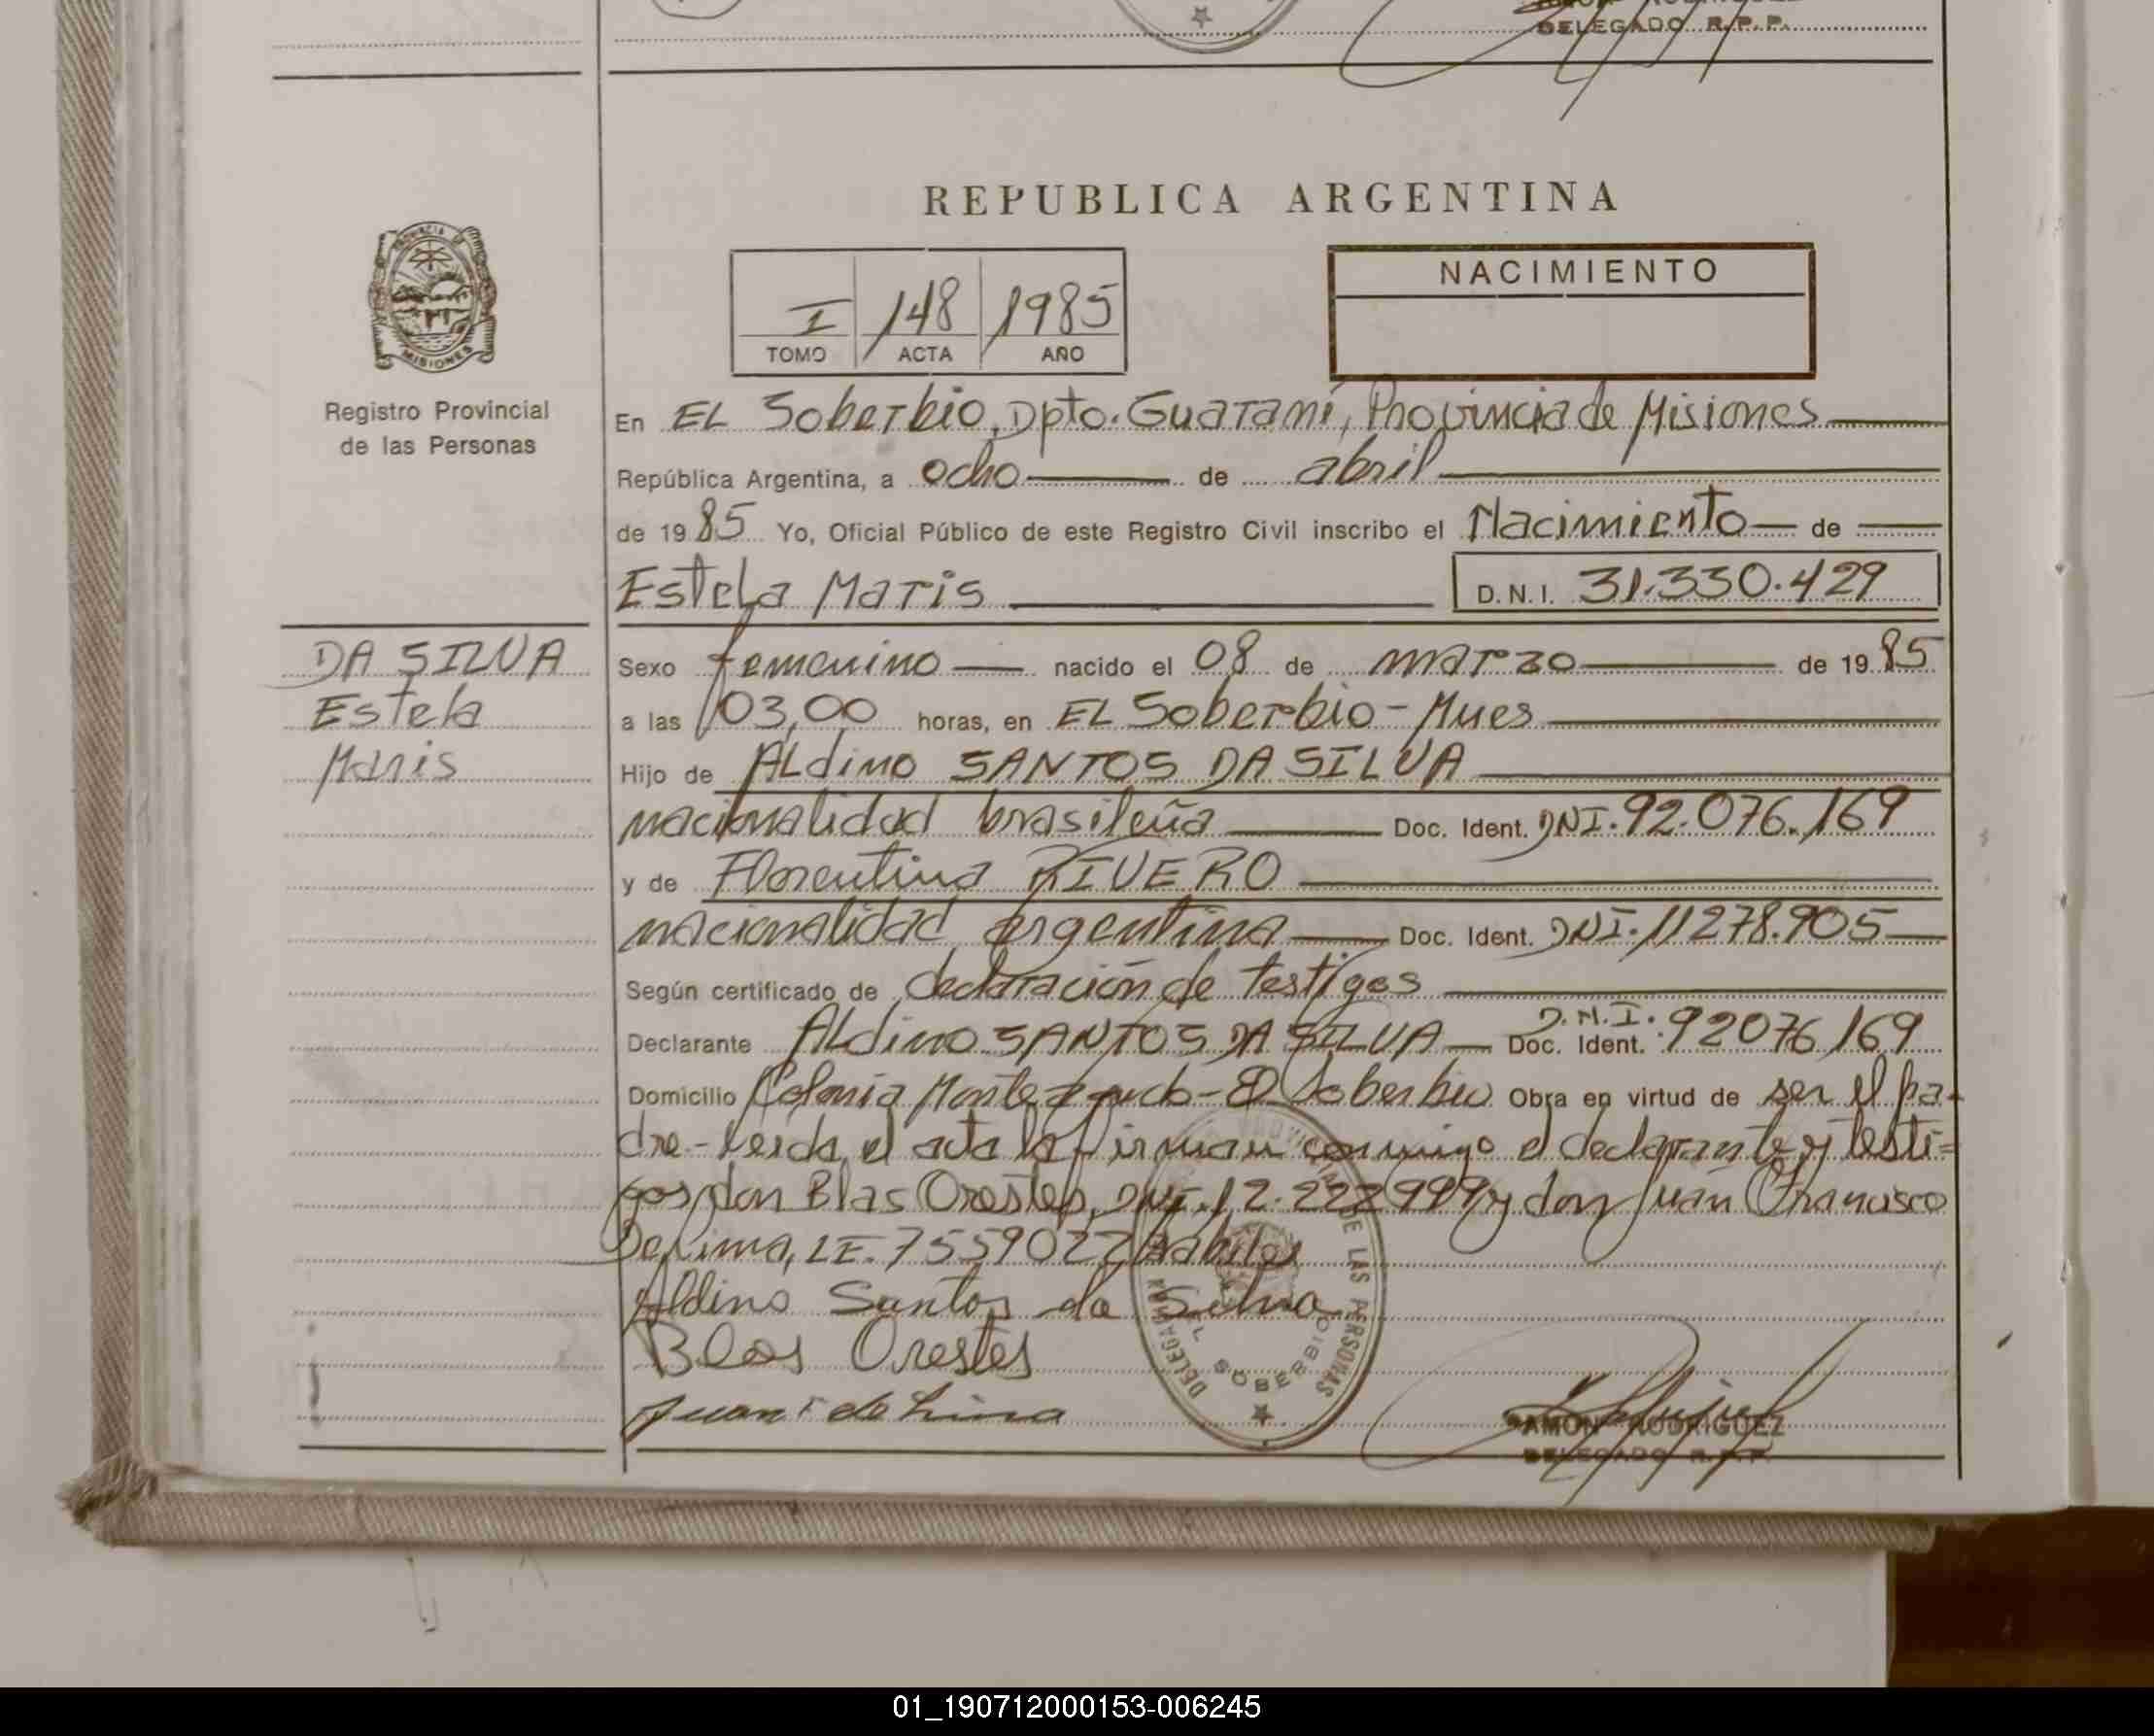 DELEGADO R.P.P.
REPUBLICA ARGENTINA
PROVINCIA DE
MISIONES
Registro Provincial
de las Personas
I 148 1985
TOMO ACTA AÑO
NACIMIENTO
En EL Soberbio, Dpto. Guaraní, Provincia de Misiones
República Argentina, a ocho de abril
de 1985 Yo, Oficial Público de este Registro Civil inscribo el Nacimiento de
Estela Maris D.N.I. 31.330.429
DA SILVA
Estela
Maris
Sexo femenino nacido el 08 de marzo de 1985
a las 03,00 horas, en EL Soberbio - Mnes
Hijo de ALdino SANTOS DA SILVA
nacionalidad brasileña Doc. Ident. DNI. 92.076.169
y de Florentina RIVERO
nacionalidad argentina Doc. Ident. DNI. 11278.905
Según certificado de declaración de testigos
Declarante ALdino SANTOS DA SILVA Doc. Ident. D.N.I. 92076169
Domicilio Colonia Monteagudo - El Soberbio Obra en virtud de ser el pa-
dre.- Leída el acta la firman conmigo el declarante y testi=
gos, don Blas Orestes, DNI. 12.222999 y don Juan Francisco
De Lima, LE. 7559022 habiles
Aldino Santos da Silva
Blas Orestes
Juan F de Lima
DE LAS PERSONAS
DELEGACION
EL SOBERBIO
RAMON RODRIGUEZ
DELEGADO R.P.P.
01_190712000153-006245